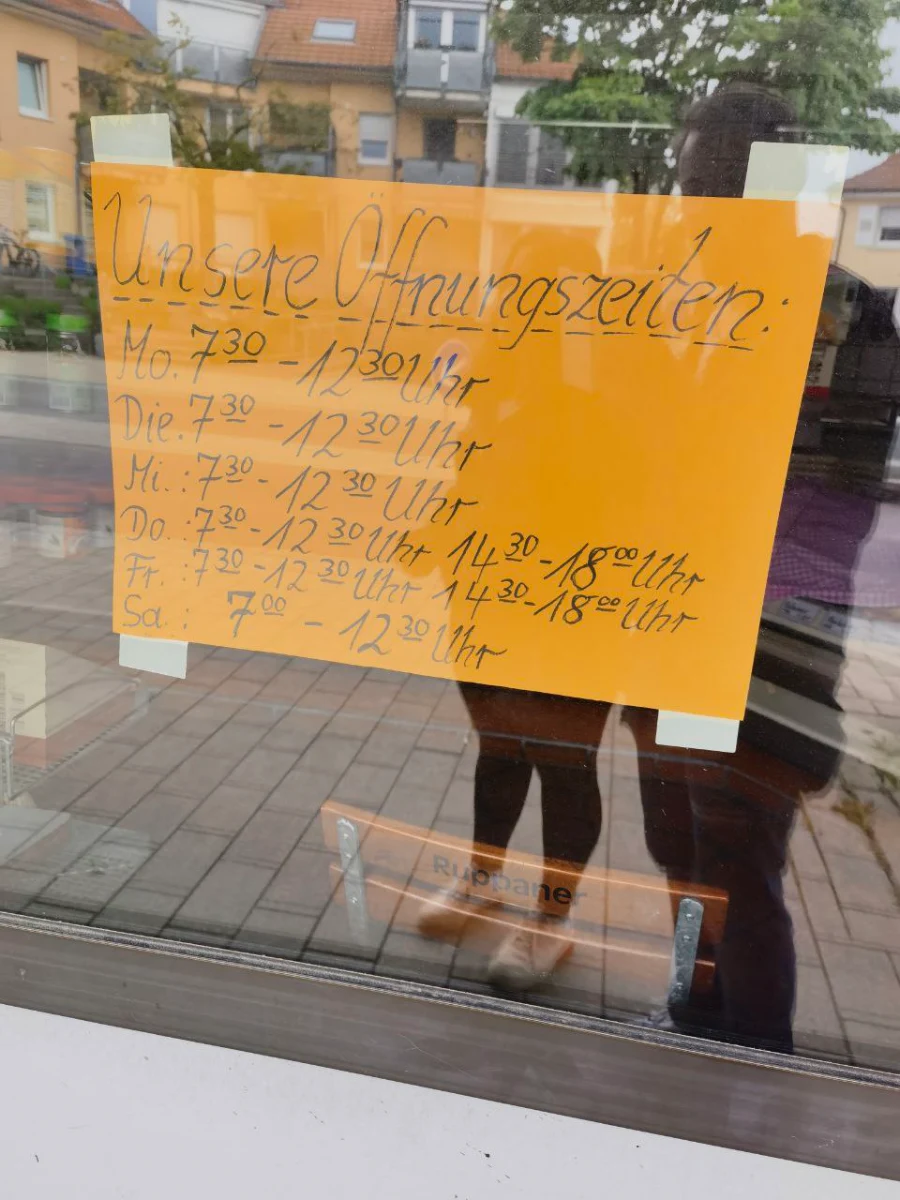 Unsere Öffnungszeiten:
Mo. 7³⁰ - 12³⁰ Uhr
Die. 7³⁰ - 12³⁰ Uhr
Mi. : 7³⁰ - 12³⁰ Uhr
Do. : 7³⁰ - 12³⁰ Uhr 14³⁰ - 18⁰⁰ Uhr
Fr. : 7³⁰ - 12³⁰ Uhr 14³⁰ - 18⁰⁰ Uhr
Sa. : 7⁰⁰ - 12³⁰ Uhr
Ruppaner